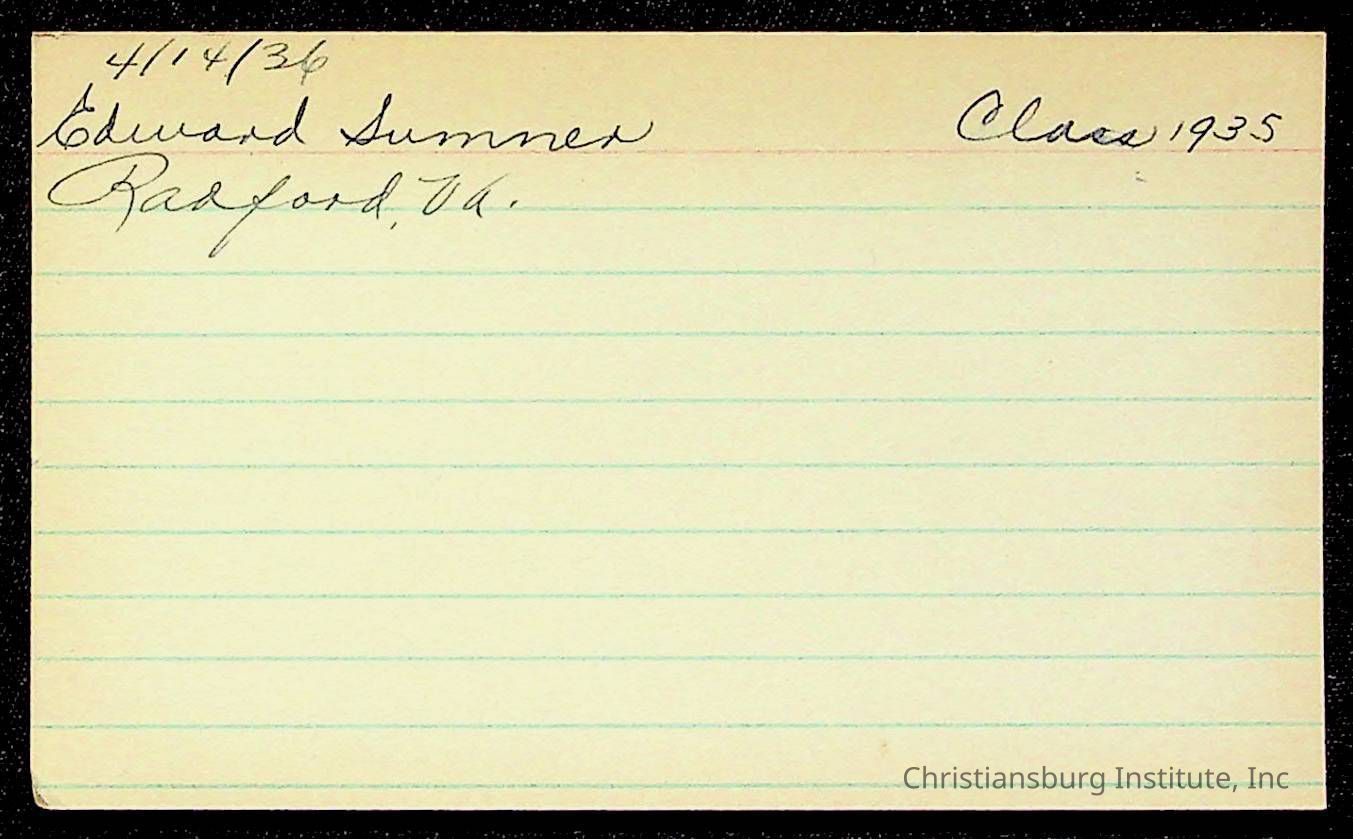 4/14/36
Edward Sumner Class 1935
Radford, Va.
Christiansburg Institute, Inc